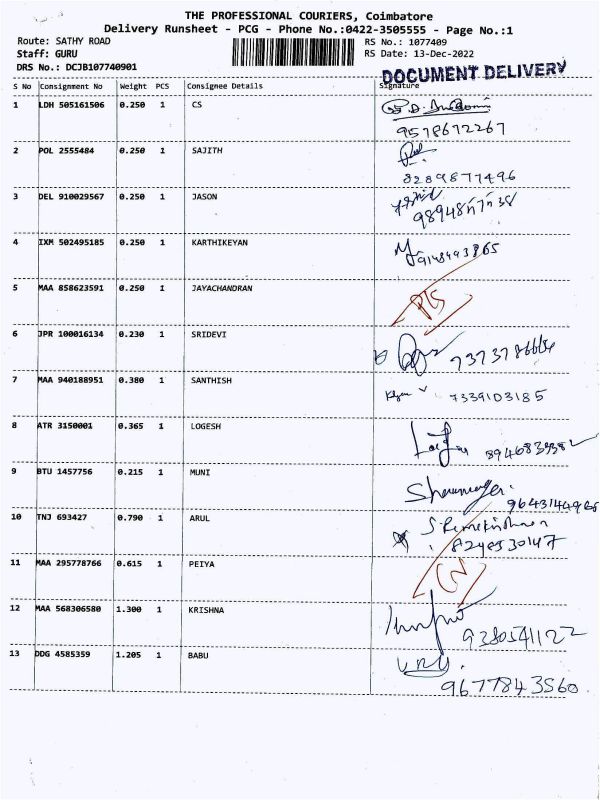 THE PROFESSIONAL COURIERS, Coimbatore
Delivery Runsheet - PCG - Phone No.:0422-3505555 - Page No.:1
Route: SATHY ROAD RS No.: 1077409
Staff: GURU RS Date: 13-Dec-2022
DRS No.: DCJB107740901
DOCUMENT DELIVERY
S No Consignment No Weight PCS Consignee Details Signature
1 LDH 505161506 0.250 1 CS
9578672267
2 POL 2555484 0.250 1 SAJITH
8289877496
3 DEL 910029567 0.250 1 JASON
4 IXM 502495185 0.250 1 KARTHIKEYAN
5 MAA 858623591 0.250 1 JAYACHANDRAN
6 JPR 100016134 0.230 1 SRIDEVI
7 MAA 940188951 0.380 1 SANTHISH
7339103185
8 ATR 3150001 0.365 1 LOGESH
9 BTU 1457756 0.215 1 MUNI
10 TNJ 693427 0.790 1 ARUL
11 MAA 295778766 0.615 1 PEIYA
12 MAA 568306580 1.300 1 KRISHNA
9380541122
13 DDG 4585359 1.205 1 BABU
9677843560